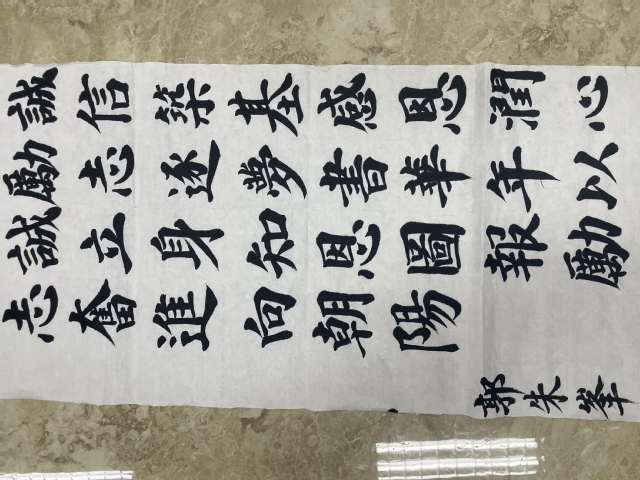 誠信築基感恩潤心
勵志逐夢書華年以
誠立身知恩圖報勵
志奮進向朝陽
郭朱峯